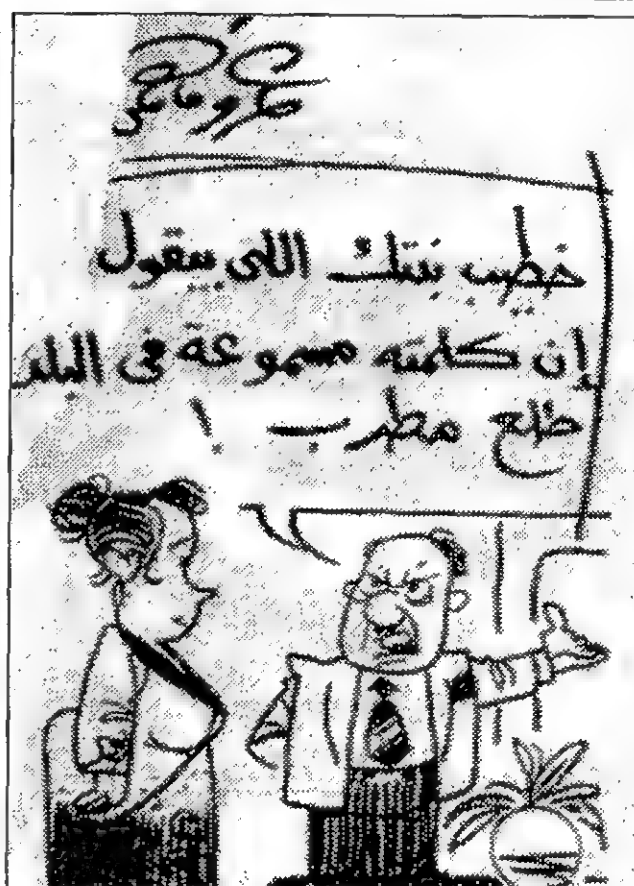 خطيب بنتك اللى بيقول
إن كلمته مسموعة فى البلد
طلع مطرب !